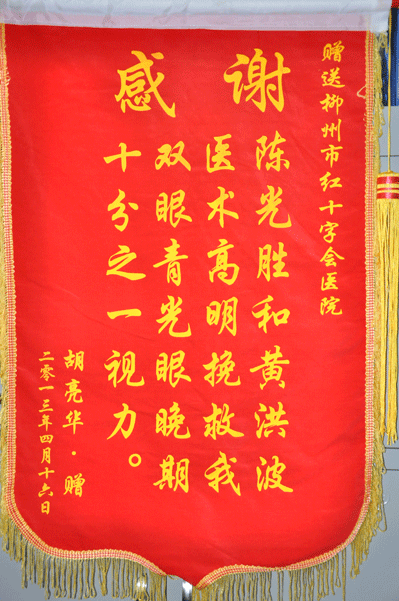 赠送柳州市红十字会医院
感谢
陈光胜和黄洪波
医术高明挽救我
双眼青光眼晚期
十分之一视力。
胡亮华·赠
二零一三年四月十六日